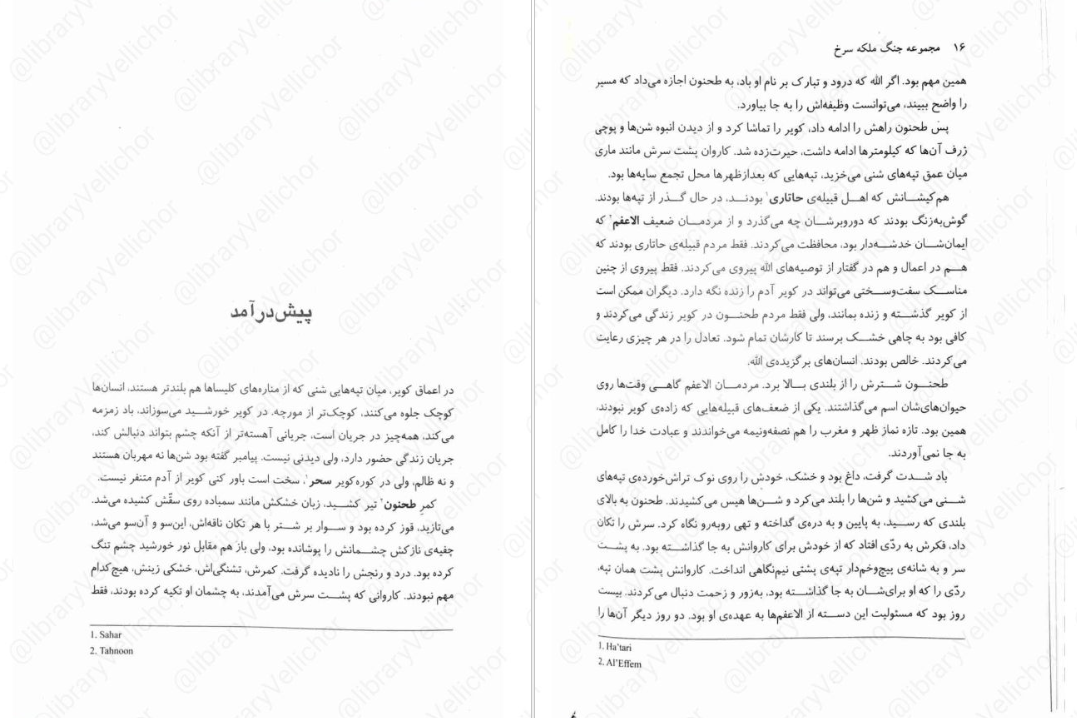 پیش‌درآمد
در اعماق کویر، میان تپه‌هایی شنی که از مناره‌های کلیساها هم بلندتر هستند، انسان‌ها
کوچک جلوه می‌کنند، کوچک‌تر از مورچه. در کویر خورشید می‌سوزاند، باد زمزمه
می‌کند، همه‌چیز در جریان است، جریانی آهسته‌تر از آنکه چشم بتواند دنبالش کند،
جریان زندگی حضور دارد، ولی دیدنی نیست. پیامبر گفته بود شن‌ها نه مهربان هستند
و نه ظالم، ولی در کوره‌کویر سحر¹، سخت است باور کنی کویر از آدم متنفر نیست.
کمرِ طحنون² تیر کشید، زبان خشکش مانند سمباده روی سقّش کشیده می‌شد.
می‌تازید، قوز کرده بود و سوار بر شتر با هر تکان ناقه‌اش، این‌سو و آن‌سو می‌شد،
چفیه‌ی نازکش چشمانش را پوشانده بود، ولی باز هم مقابل نور خورشید چشم تنگ
کرده بود. درد و رنجش را نادیده گرفت. کمرش، تشنگی‌اش، خشکی زینش، هیچ‌کدام
مهم نبودند. کاروانی که پشت سرش می‌آمدند، به چشمان او تکیه کرده بودند، فقط
1. Sahar
2. Tahnoon
۱۶ مجموعه جنگ ملکه سرخ
همین مهم بود. اگر الله که درود و تبارک بر نام او باد، به طحنون اجازه می‌داد که مسیر
را واضح ببیند، می‌توانست وظیفه‌اش را به جا بیاورد.
پس طحنون راهش را ادامه داد، کویر را تماشا کرد و از دیدن انبوه شن‌ها و پوچی
ژرف آن‌ها که کیلومترها ادامه داشت، حیرت‌زده شد. کاروان پشت سرش مانند ماری
میان عمق تپه‌های شنی می‌خزید، تپه‌هایی که بعدازظهرها محل تجمع سایه‌ها بود.
هم‌کیشانش که اهل قبیله‌ی حاتاری¹ بودند، در حال گذر از تپه‌ها بودند.
گوش‌به‌زنگ بودند که دوروبرشان چه می‌گذرد و از مردمان ضعیف الاعفم² که
ایمان‌شان خدشه‌دار بود، محافظت می‌کردند. فقط مردم قبیله‌ی حاتاری بودند که
هم در اعمال و هم در گفتار از توصیه‌های الله پیروی می‌کردند. فقط پیروی از چنین
مناسک سفت‌وسختی می‌تواند در کویر آدم را زنده نگه دارد. دیگران ممکن است
از کویر گذشته و زنده بمانند، ولی فقط مردم طحنون در کویر زندگی می‌کردند و
کافی بود به چاهی خشک برسند تا کارشان تمام شود. تعادل را در هر چیزی رعایت
می‌کردند. خالص بودند. انسان‌های برگزیده‌ی الله.
طحنون شترش را از بلندی بالا برد. مردمان الاعفم گاهی وقت‌ها روی
حیوان‌های‌شان اسم می‌گذاشتند. یکی از ضعف‌های قبیله‌هایی که زاده‌ی کویر نبودند،
همین بود. تازه نماز ظهر و مغرب را هم نصفه‌ونیمه می‌خواندند و عبادت خدا را کامل
به جا نمی‌آوردند.
باد شدت گرفت، داغ بود و خشک، خودش را روی نوک تراش‌خورده‌ی تپه‌های
شنی می‌کشید و شن‌ها را بلند می‌کرد و شن‌ها هیس می‌کشیدند. طحنون به بالای
بلندی که رسید، به پایین و به دره‌ی گداخته و تهی روبه‌رو نگاه کرد. سرش را تکان
داد، فکرش به ردّی افتاد که از خودش برای کاروانش به جا گذاشته بود. به پشت
سر و به شانه‌ی پیچ‌وخم‌دار تپه‌ی پشتی نیم‌نگاهی انداخت. کاروانش پشت همان تپه،
ردّی را که او برای‌شان به جا گذاشته بود، به‌زور و زحمت دنبال می‌کردند. بیست
روز بود که مسئولیت این دسته از الاعفم‌ها به عهده‌ی او بود. دو روز دیگر آن‌ها را
1. Ha'tari
2. Al'Effem
@libraryVellichor